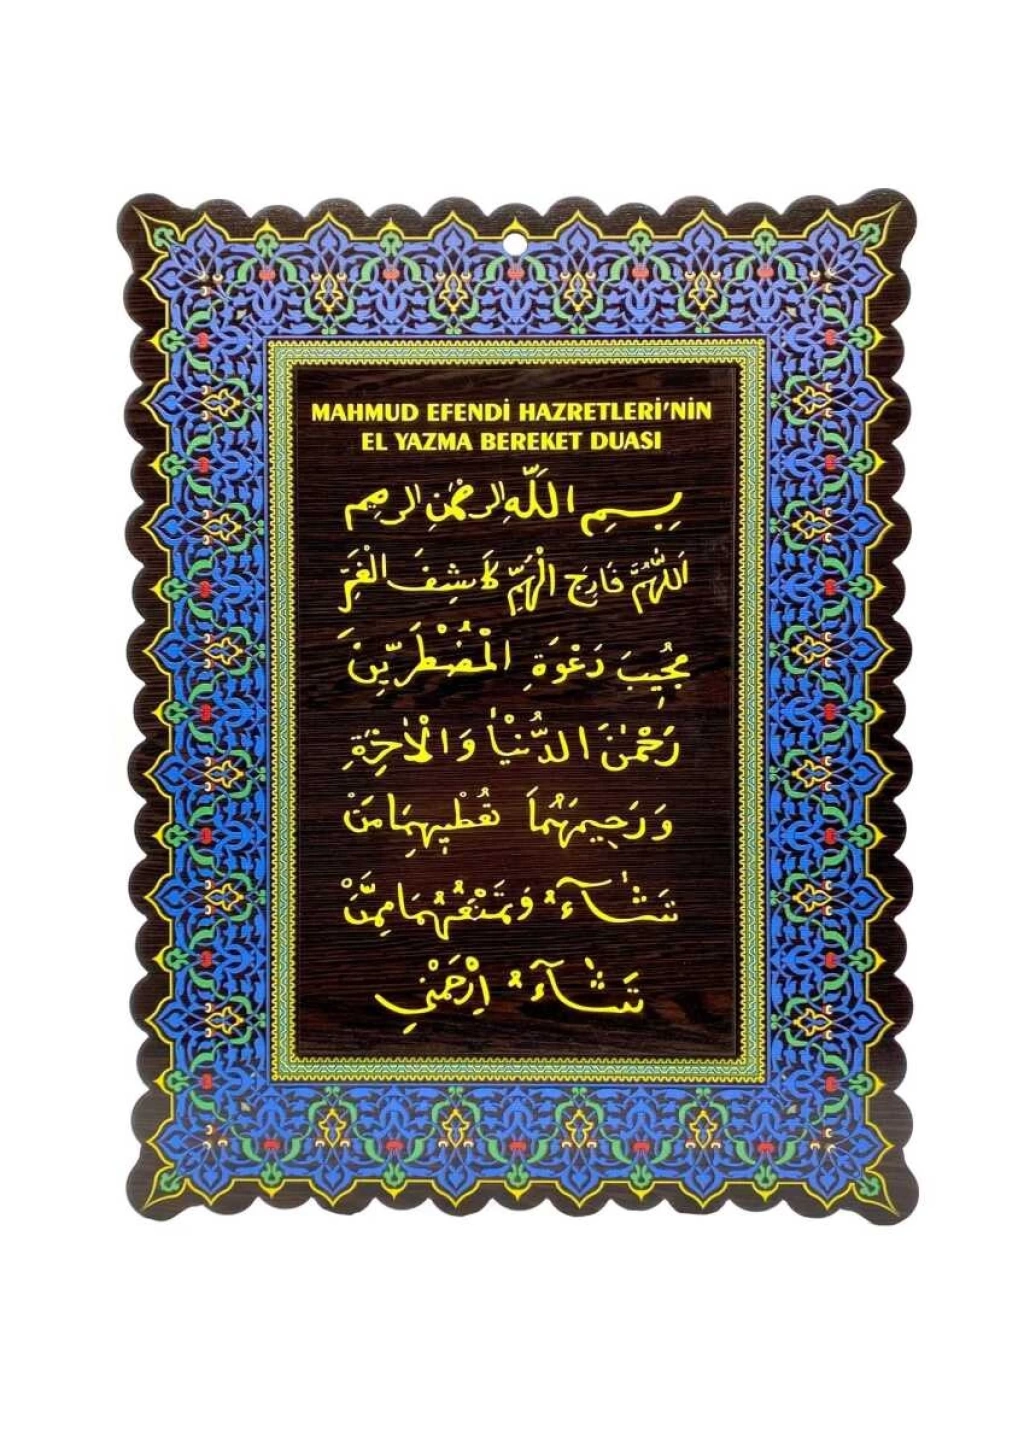 MAHMUD EFENDİ HAZRETLERİ'NİN
EL YAZMA BEREKET DUASI
بِسِمِ اللَّهِ الرحْمٰنِ الرحيم
اَللّٰهُمَّ فَارِجَ الْهَمِّ كَاشِفَ الْغَمِّ
مُجِيبَ دَعْوَةِ الْمُضْطَرِّينَ
رَحْمٰنَ الدُّنْيَا وَالْاٰخِرَةِ
وَرَحِيمَهُمَا تُعْطِيهِمَا مَنْ
تَشَآءُ وَتَمْنَعُهُمَا مِمَّنْ
تَشَآءُ اِرْحَمْنِي